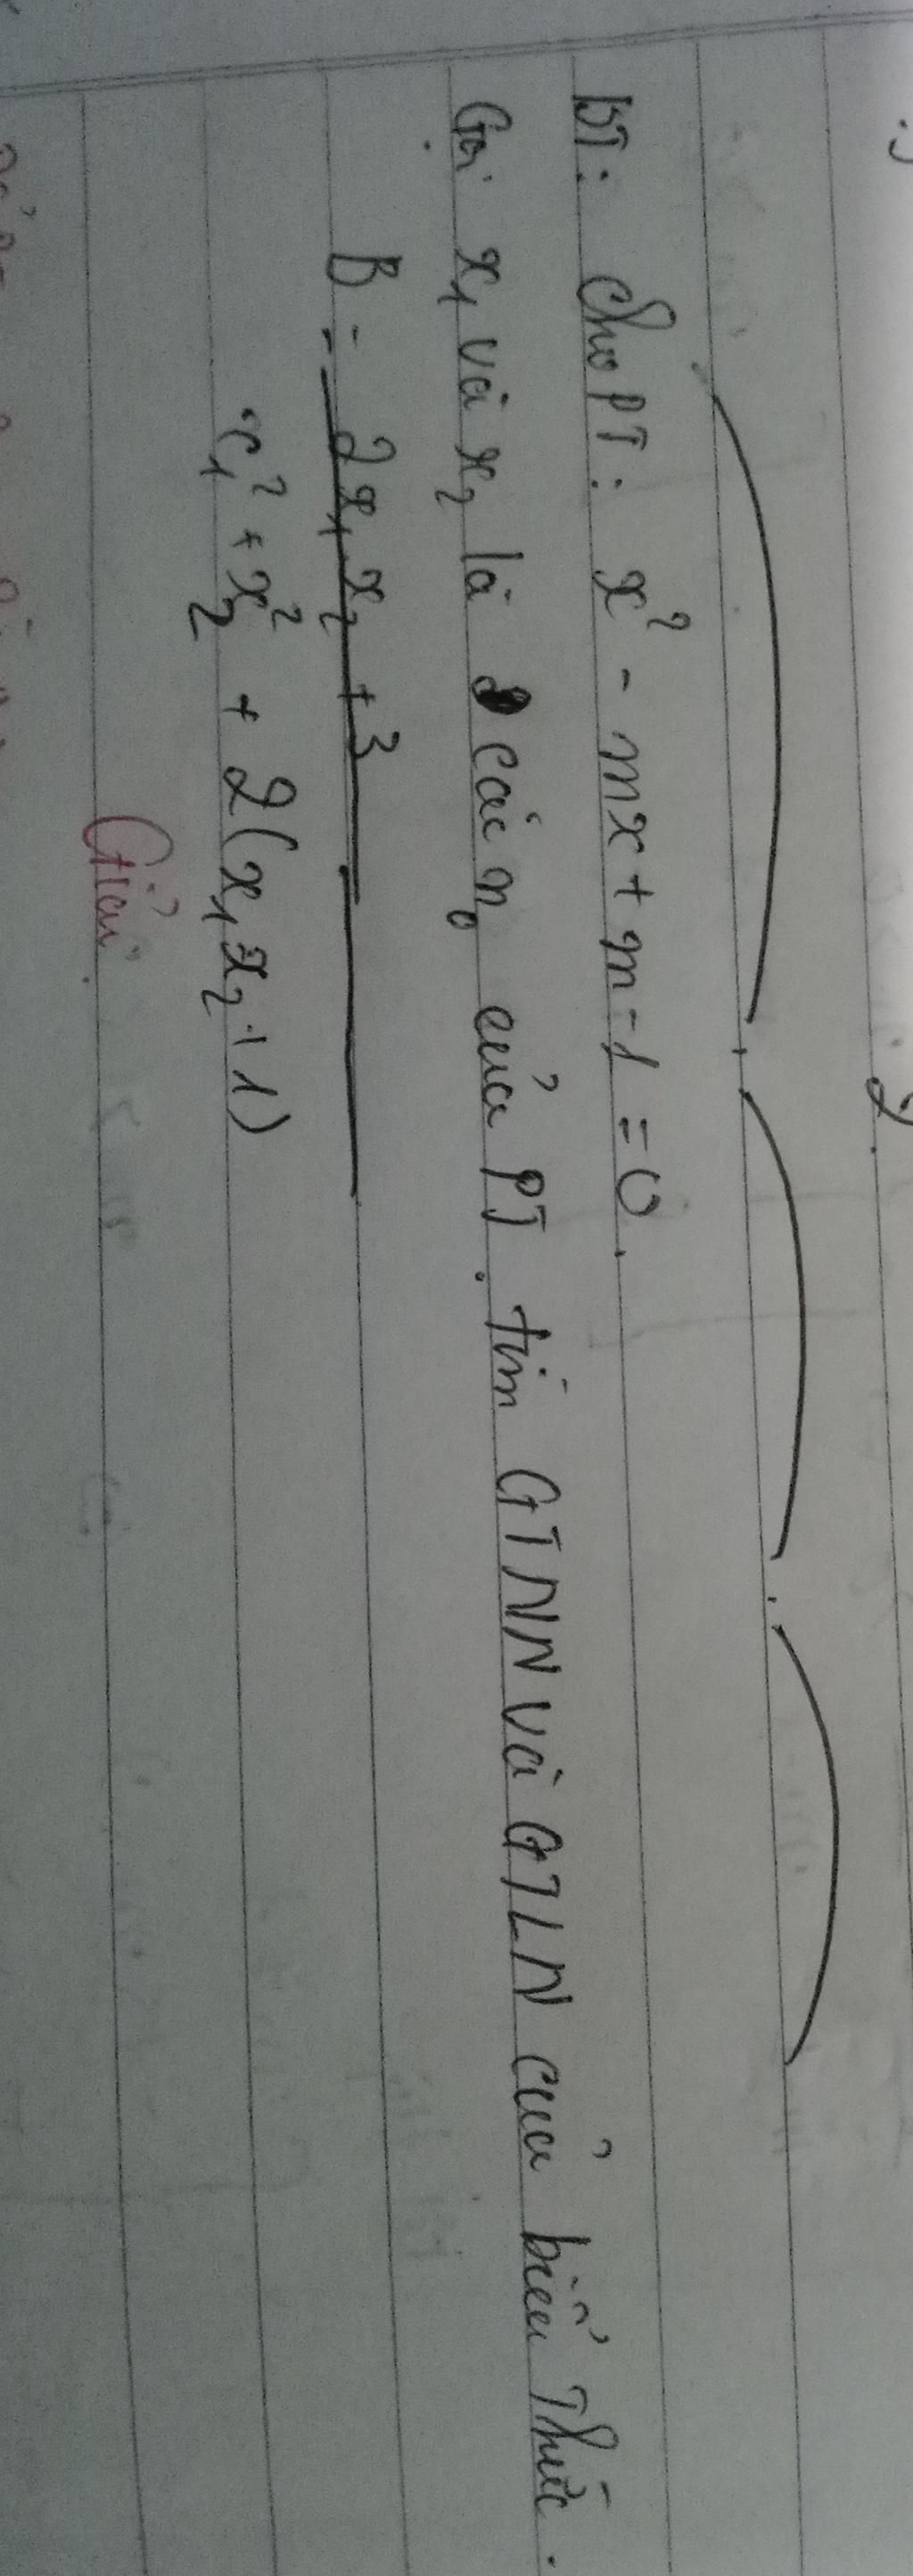 BT: Cho PT: x² - mx + m - 1 = 0.
Gọi x₁ và x₂ là các n₀ của PT. tìm GTNN và GTLN của biểu thức.
B = 2x₁x₂ + 3
x₁² + x₂² + 2(x₁x₂ + 1)
Giải